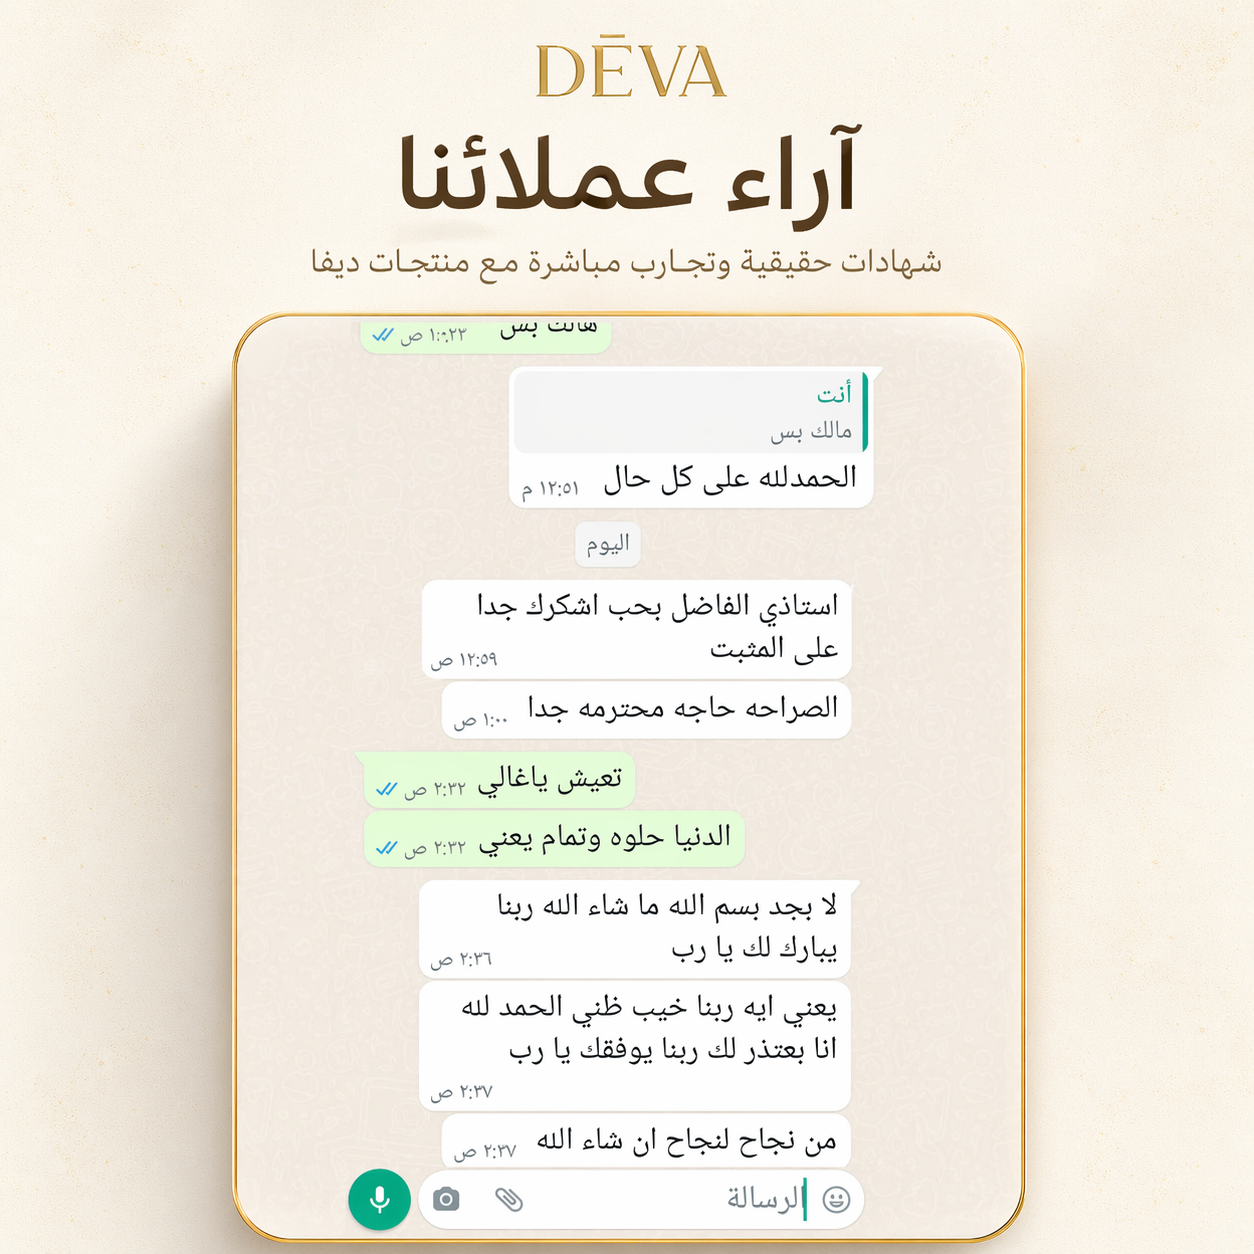 DĒVA
آراء عملائنا
شهادات حقيقية وتجارب مباشرة مع منتجات ديفا
بس ١:٠٢٣ ص
أنت
مالك بس
الحمدلله على كل حال ١٢:٥١ م
اليوم
استاذي الفاضل بحب اشكرك جدا
على المثبت ١٢:٥٩ ص
الصراحه حاجه محترمه جدا ١:٠٠ ص
تعيش ياغالي ٢:٣٢ ص
الدنيا حلوه وتمام يعني ٢:٣٢ ص
لا بجد بسم الله ما شاء الله ربنا
يبارك لك يا رب ٢:٣٦ ص
يعني ايه ربنا خيب ظني الحمد لله
انا بعتذر لك ربنا يوفقك يا رب
٢:٣٧ ص
من نجاح لنجاح ان شاء الله ٢:٣٧ ص
الرسالة